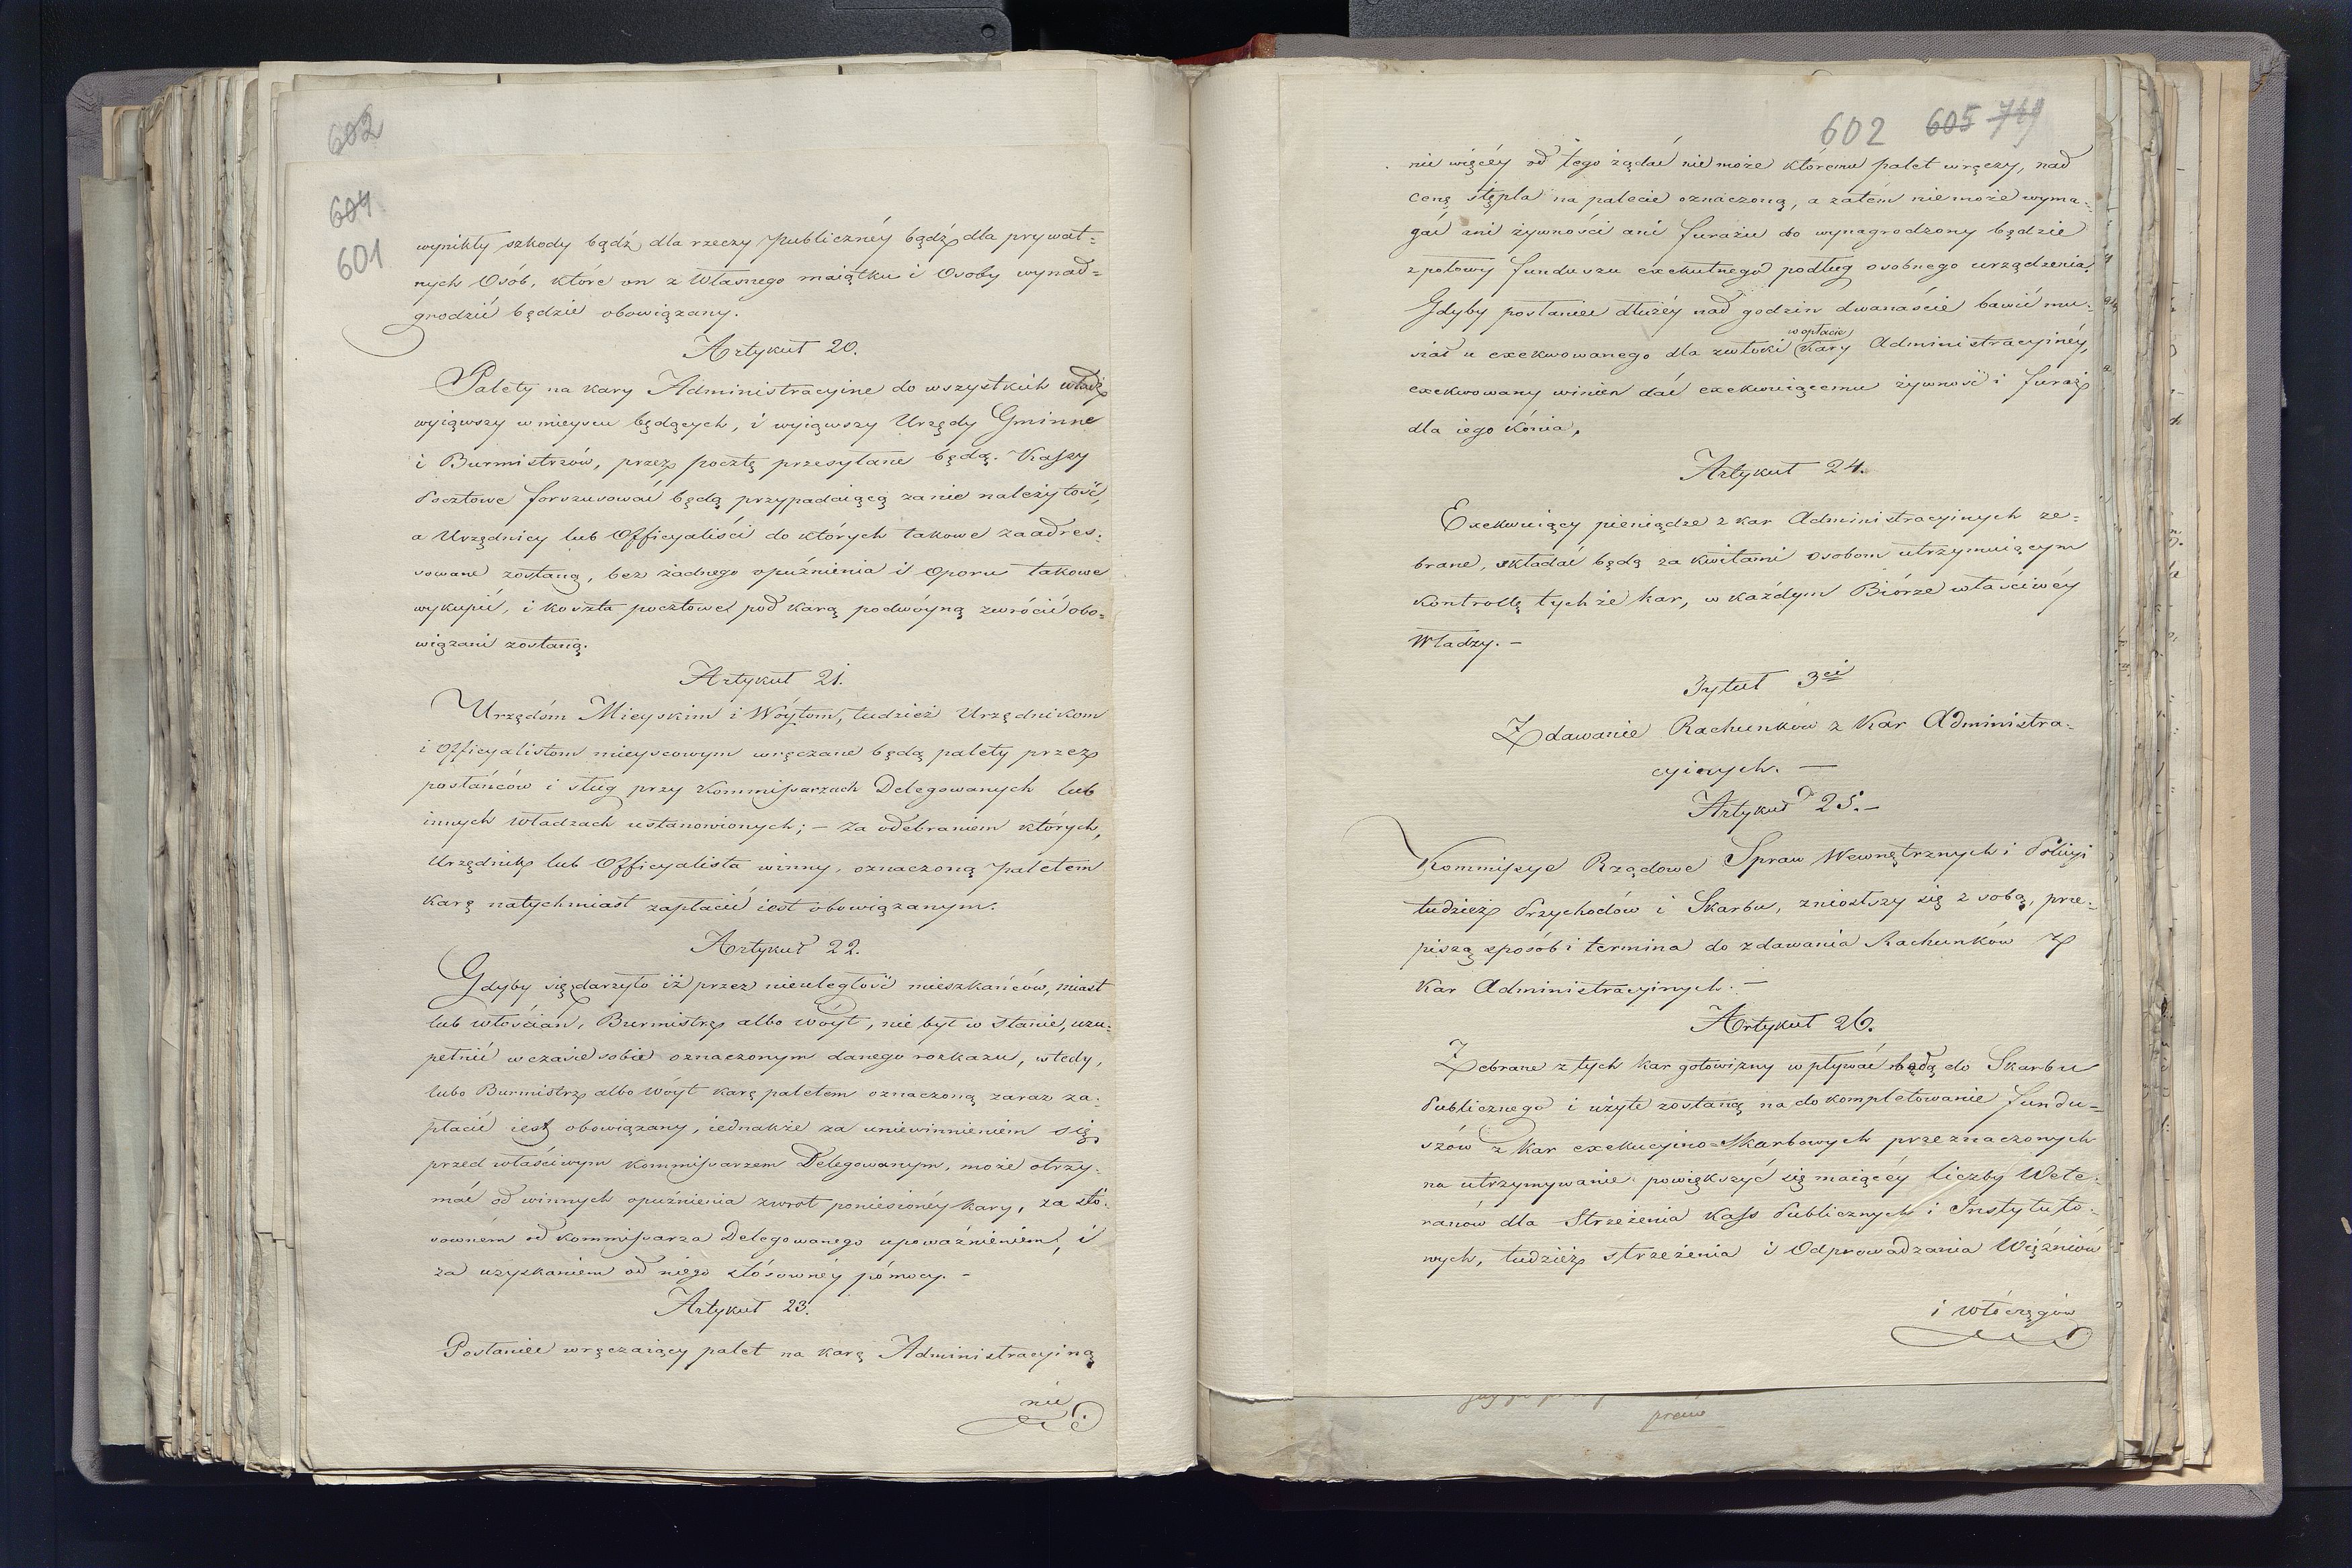 602
604
601
wynikły szkody bądź dla rzeczy publicznéy bądź dla prywat=
nych Osób, które on z własnego maiątku i Osoby wynad=
grodzić będzie obowiązany.
Artykuł 20.
Palety na kary Administracyine do wszystkich władz
wyiąwszy w mieyscu będących, i wyiąwszy Urzędy Gminne
i Burmistrzów, przez pocztę przesyłane będą. Kassy
Pocztowe forszusować będą przypadaiącą za nie należytość,
a Urzędnicy lub Officyaliści do których takowe zaadres=
sowane zostaną, bez żadnego opuźnienia i oporu takowe
wykupić, i koszta pocztowe pod karą podwóyną zwrócić obo=
wiązani zostaną.
Artykuł 21.
Urzędóm Mieyskim i Wóytom, tudzież Urzędnikom
i Officyalistom mieyscowym wręczane będą palety przez
posłańców i sług przy Kommissarzach Delegowanych lub
innych władzach ustanowionych; – za odebraniem których,
Urzędnik lub Officyalista winny, oznaczoną paletem
karę natychmiast zapłacić iest obowiązanym.
Artykuł 22.
Gdyby się zdarzyło iż przez nieuległość mieszkańców, miast
lub włościan, Burmistrz albo Wóyt, nie był w stanie, uzu=
pełnić w czasie sobie oznaczonym danego rozkazu, wtedy,
lubo Burmistrz albo Wóyt karę paletem oznaczoną zaraz za=
płacić iest obowiązany, iednakże za uniewinnieniem się
przed właściwym Kommissarzem Delegowanym, może otrzy=
mać od winnych opuźnienia zwrot poniesionéy kary, za stó=
sownem od Kommissarza Delegowanego upoważnieniem, i
za uzyskaniem od niego stósownéy pómocy. –
Artykuł 23.
Posłaniec wręczaiący palet na karę Administracyiną
nic
602 605 719
nic więcéy od tego żądać nie może któremu palet wręczy, nad
cenę stępla na palecie oznaczoną, a zatém nie może wyma=
gać ani żywności ani furażu bo wynagrodzony będzie
z połowy funduszu exekutnego podług osobnego urządzenia.
Gdyby posłaniec dłużéy nad godzin dwanaście bawić mu=
w opłacie
siał u exekwowanego dla zwłoki kary Administracyinéy,
exekwowany winien dać exekwuiącemu żywność i furaż
dla iego kónia,
Artykuł 24.
Exekwuiący pieniądze z kar Administracyinych ze=
brane, składać będą za kwitami osobom utrzymuiącym
kontrollę tychże kar, w każdym Biórze właściwéy
Władzy. –
Tytuł 3ci
Zdawanie Rachunków z Kar Administra=
cyinych. –
Artykuł 25. –
Kommissye Rządowe Spraw Wewnętrznych i Policyi
tudzież Przychodów i Skarbu, zniósłszy się z sobą, prze=
piszą sposób i termina do zdawania Rachunków z
Kar Administracyinych. –
Artykuł 26.
Zebrane z tych kar gotowizny wpływać będą do Skarbu
Publicznego i użyte zostaną na dokompletowanie fundu=
szów z kar exekucyino=Skarbowych przeznaczonych
na utrzymywanie powiększyć się maiącéy liczby Wete=
ranów dla Strzeżenia Kass Publicznych i Instytuto=
wych, tudzież strzeżenia i Odprowadzania Więźniów
i włóczęgów